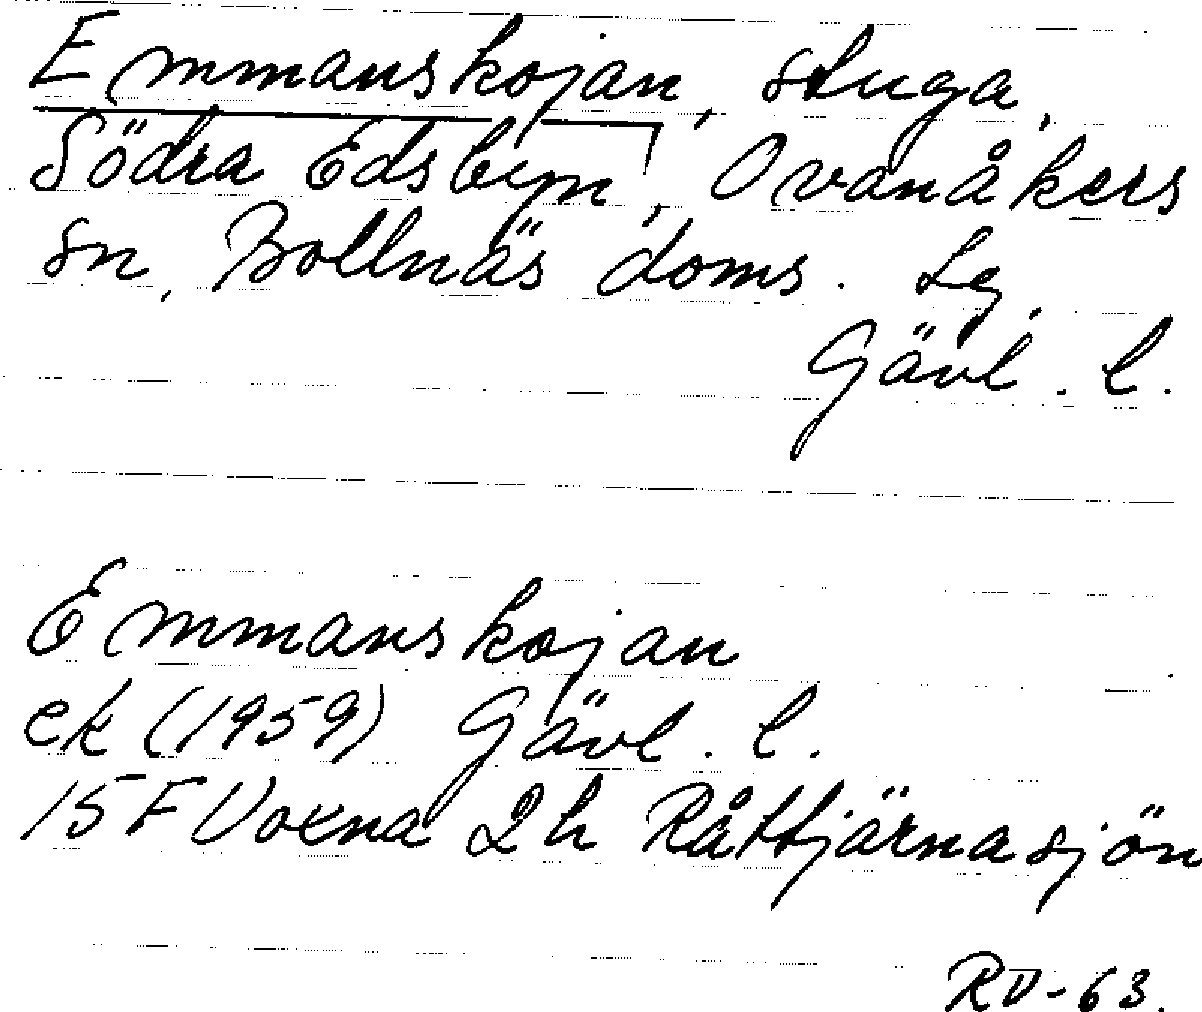 Emmanskojan, stuga,
Södra Edsbyn, Ovanåkers
sn, Bollnäs doms. sg,
Gävl. l.
Emmanskojan
ek (1959) Gävl. l.
15F Voxna 2h Råttjärnasjön
RD-63.